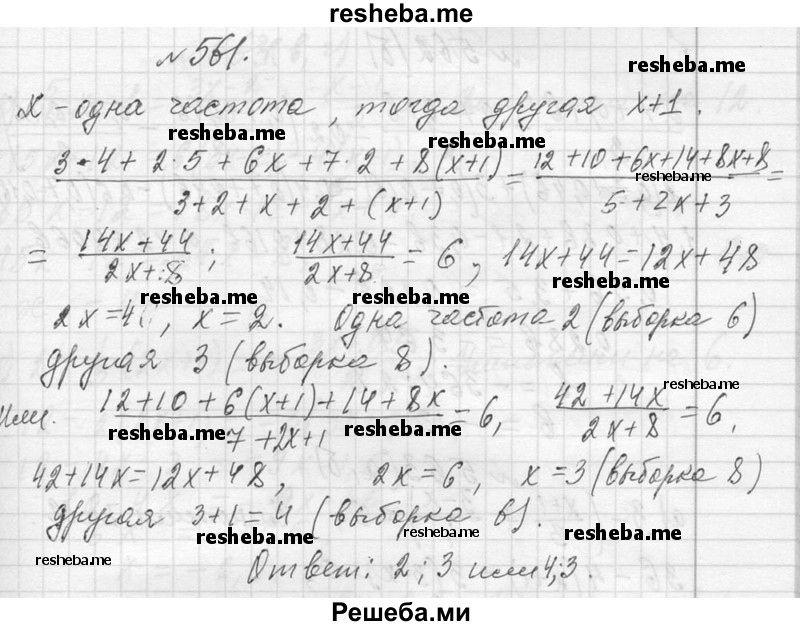 resheba.me
№561.
resheba.me
x - одна частота, тогда другая x+1.
resheba.me
resheba.me
(3·4 + 2·5 + 6x + 7·2 + 8(x+1))/(3+2+x+2+(x+1)) = (12+10+6x+14+8x+8)/(5+2x+3) =
resheba.me
= (14x+44)/(2x+8); (14x+44)/(2x+8) = 6, 14x+44=12x+48
resheba.me
resheba.me
2x=4, x=2. Одна частота 2 (выборка 6)
другая 3 (выборка 8).
resheba.me
Или. (12+10+6(x+1)+14+8x)/(7+2x+1) = 6, (42+14x)/(2x+8) = 6,
resheba.me
resheba.me
42+14x=12x+48, 2x=6, x=3 (выборка 8)
другая 3+1=4 (выборка 6).
resheba.me
resheba.me
resheba.me
Ответ: 2; 3 или 4;3.
Решеба.ми